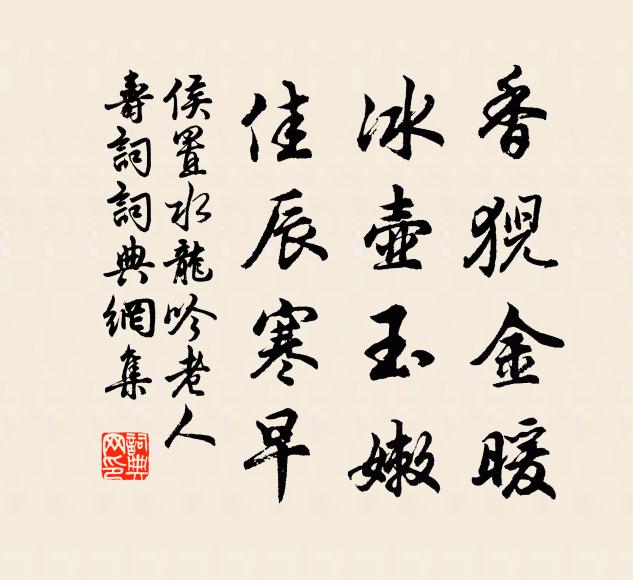 香猊金暖
冰壺玉嫩
佳辰寒早
侯置水龍吟老人
壽詞詞典網集
詞典網印